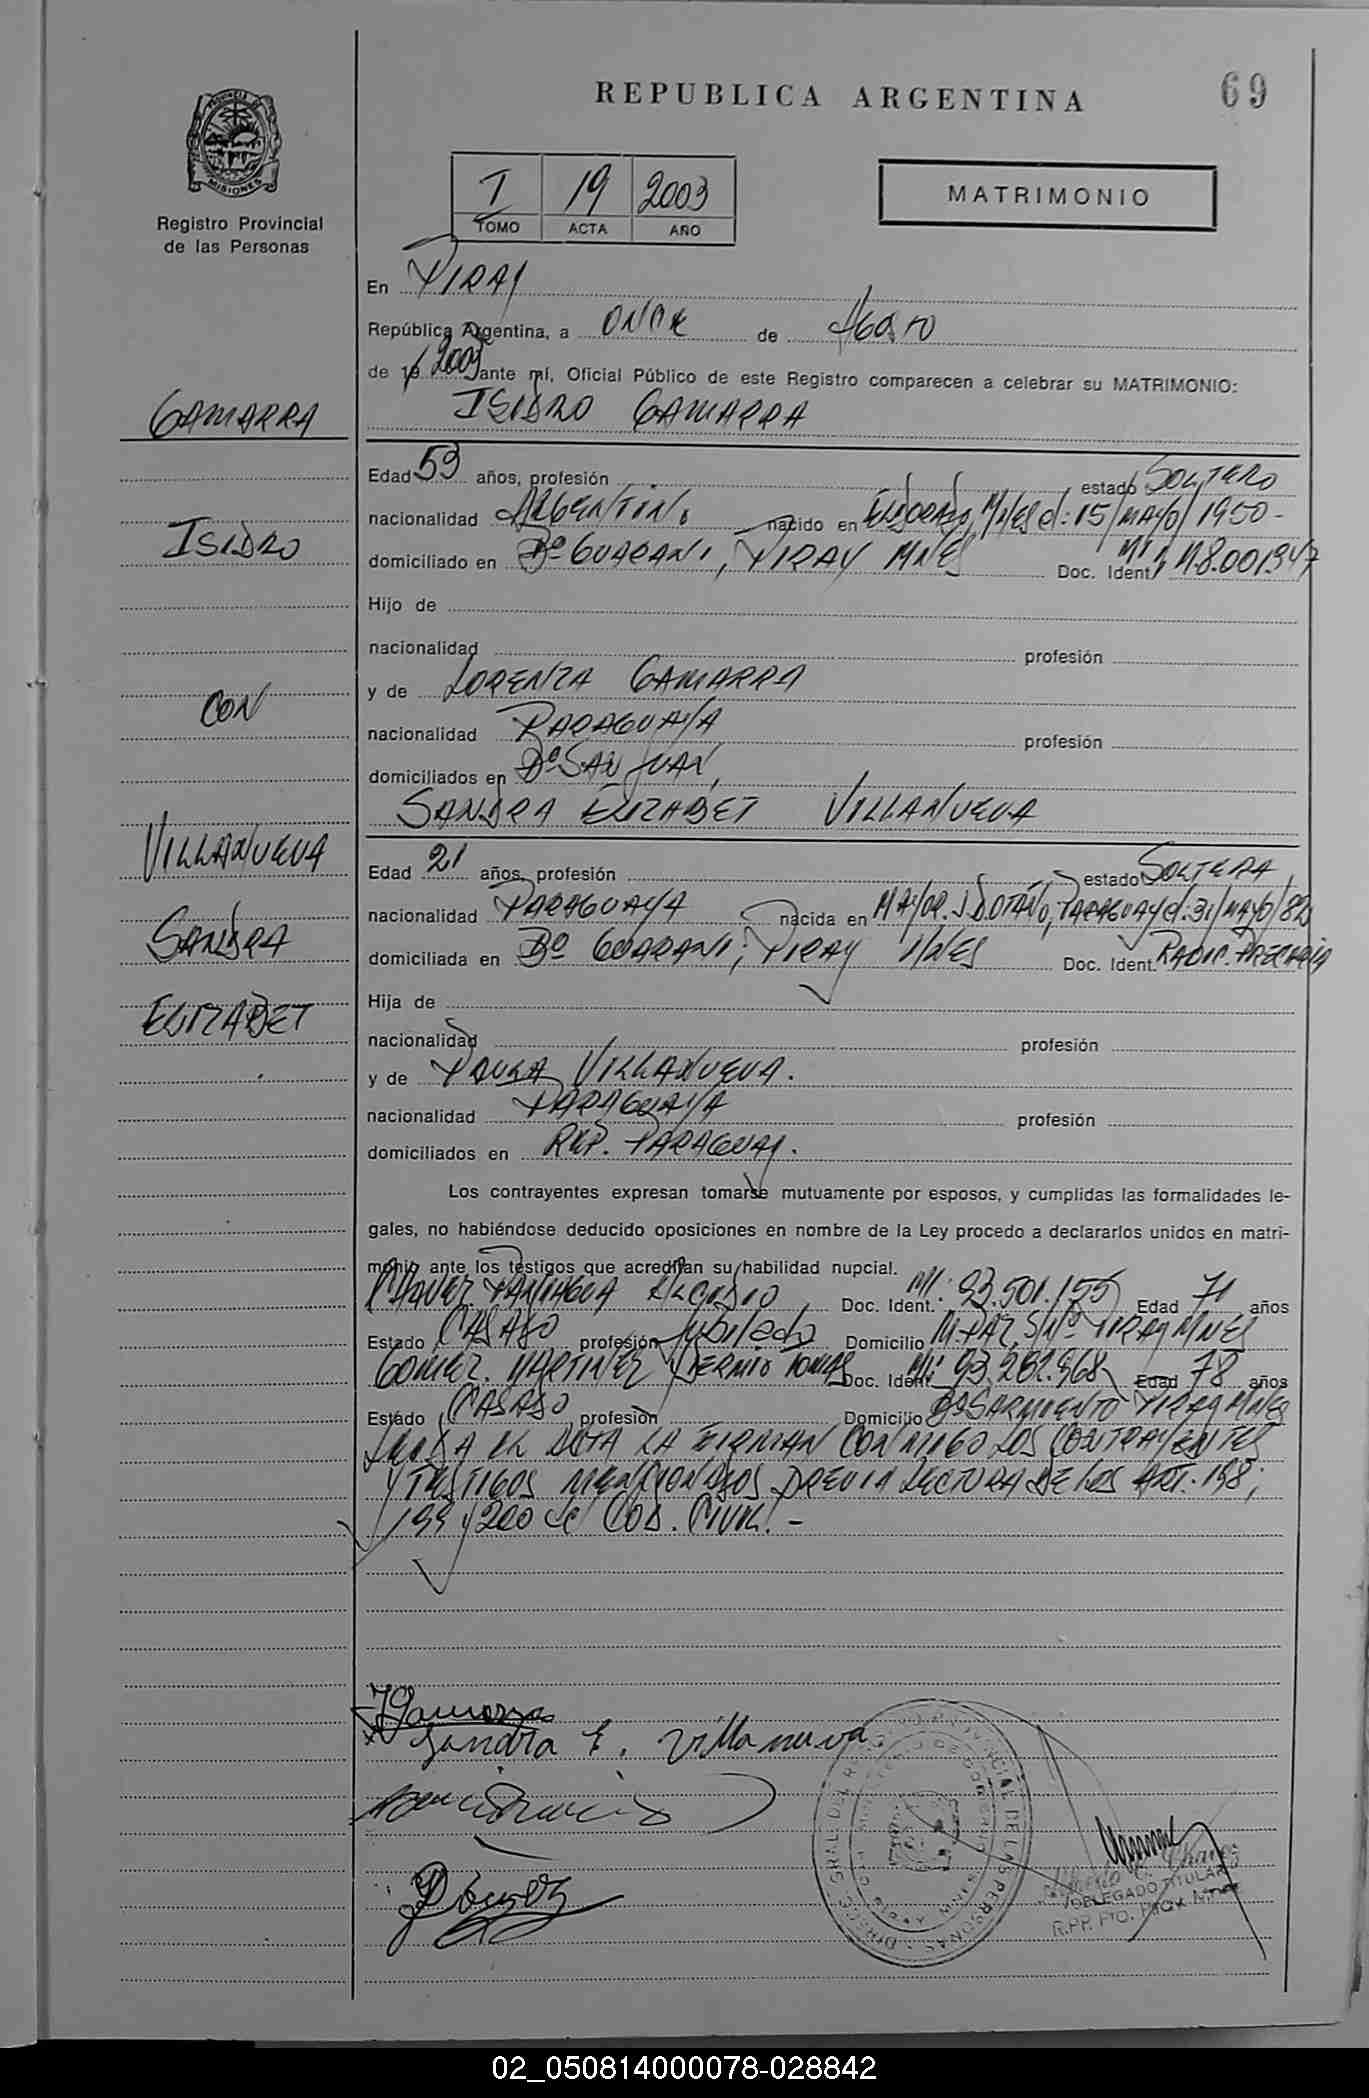 REPUBLICA ARGENTINA
69
PROVINCIA DE MISIONES
Registro Provincial
de las Personas
I 19 2003
TOMO ACTA AÑO
MATRIMONIO
En PIRAY
República Argentina, a ONCE de Agosto
de 19 2003 ante mí, Oficial Público de este Registro comparecen a celebrar su MATRIMONIO:
ISIDRO GAMARRA
GAMARRA
ISIDRO
CON
VILLANUEVA
SANDRA
ELIZABET
Edad 53 años, profesión estado SOLTERO
nacionalidad ARGENTINO nacido en ELDORADO, MNES el: 15/MAYO/1950-
domiciliado en Bº GUARANI, PIRAY MNES Doc. Ident. M.I. Nº 8.001.347
Hijo de
nacionalidad profesión
y de LORENZA GAMARRA
nacionalidad PARAGUAYA profesión
domiciliados en Bº SAN JUAN,
SANDRA ELIZABET VILLANUEVA
Edad 21 años, profesión estado SOLTERA
nacionalidad PARAGUAYA nacida en MAYOR. J. D. OTAÑO, PARAGUAY el: 31/MAYO/82
domiciliada en Bº GUARANI; PIRAY MNES Doc. Ident. RADIC. PRECARIA
Hija de
nacionalidad profesión
y de PAULA VILLANUEVA.
nacionalidad PARAGUAYA profesión
domiciliados en REP. PARAGUAY.
Los contrayentes expresan tomarse mutuamente por esposos, y cumplidas las formalidades le-
gales, no habiéndose deducido oposiciones en nombre de la Ley procedo a declararlos unidos en matri-
monio ante los testigos que acreditan su habilidad nupcial.
PANIAGUA Doc. Ident. MI: 93.501.155 Edad 71 años
Estado CASADO profesión Jubilado Domicilio M. PAZ, S/Nº PIRAY MNES
GOMEZ MARTINEZ TOMAS Doc. Ident. MI: 93.282.968 Edad 78 años
Estado CASADO profesión Domicilio Bº SARMIENTO PIRAY MNES
LEIDA EL ACTA LA FIRMAN CONMIGO LOS CONTRAYENTES
Y TESTIGOS MENCIONADOS PREVIA LECTURA DE LOS ART. 198;
199 y 200 del COD. CIVIL. -
Sandra E. Villanueva
DIRECC. GRAL. DEL REG. PROVINCIAL DE LAS PERSONAS
DELEGADO TITULAR
R.P.P. PTO. PIRAY Mnes
02_050814000078-028842